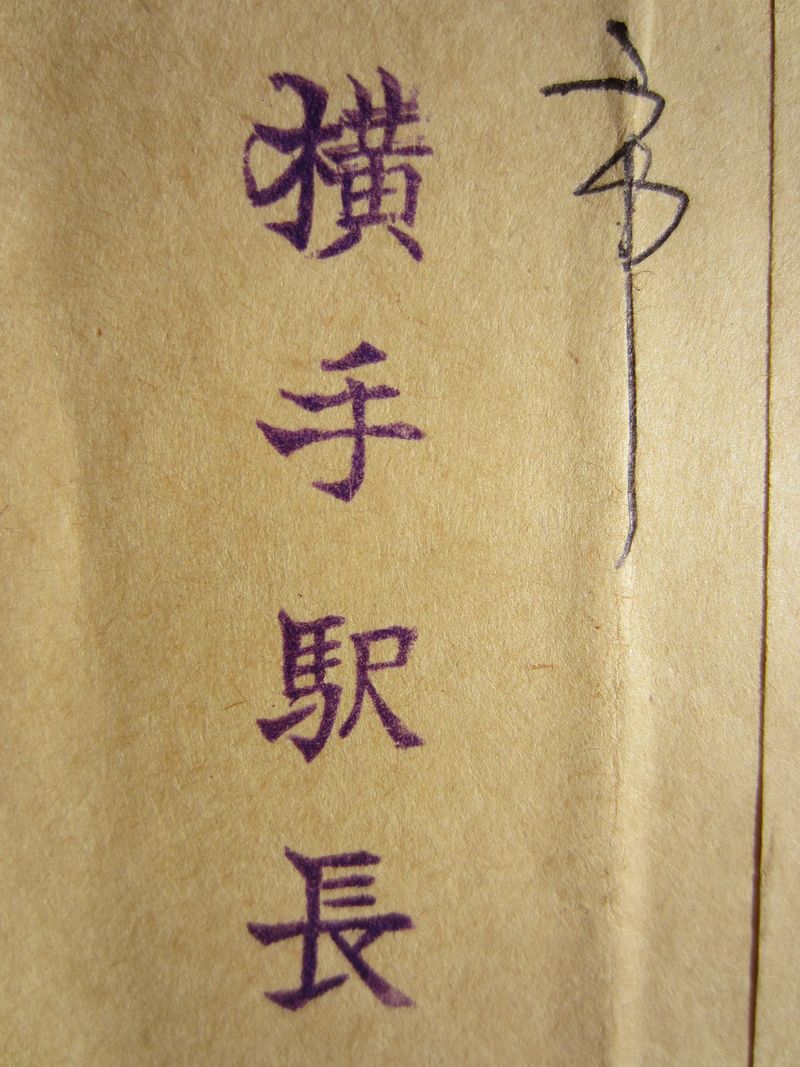 横手駅長